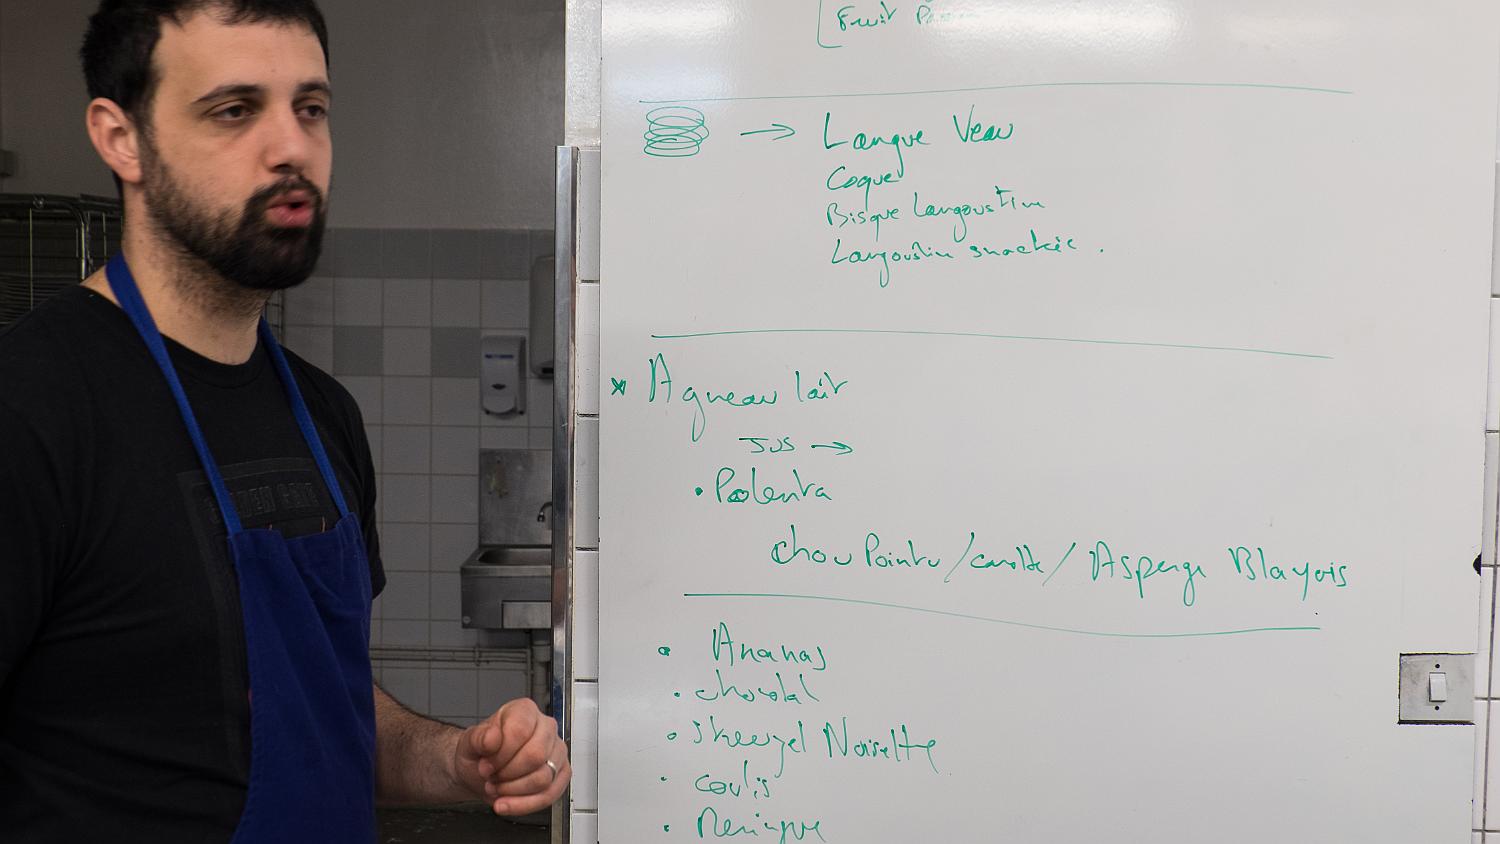 Fruit
→ Langue Veau
Coque
Bisque Langoustine
Langoustine snackée.
* Agneau lait
Jus →
• Polenta
chou Pointu / carotte / Asperge Blayais
• Ananas
• chocolat
• Streuzel Noisette
• coulis
• Meringue